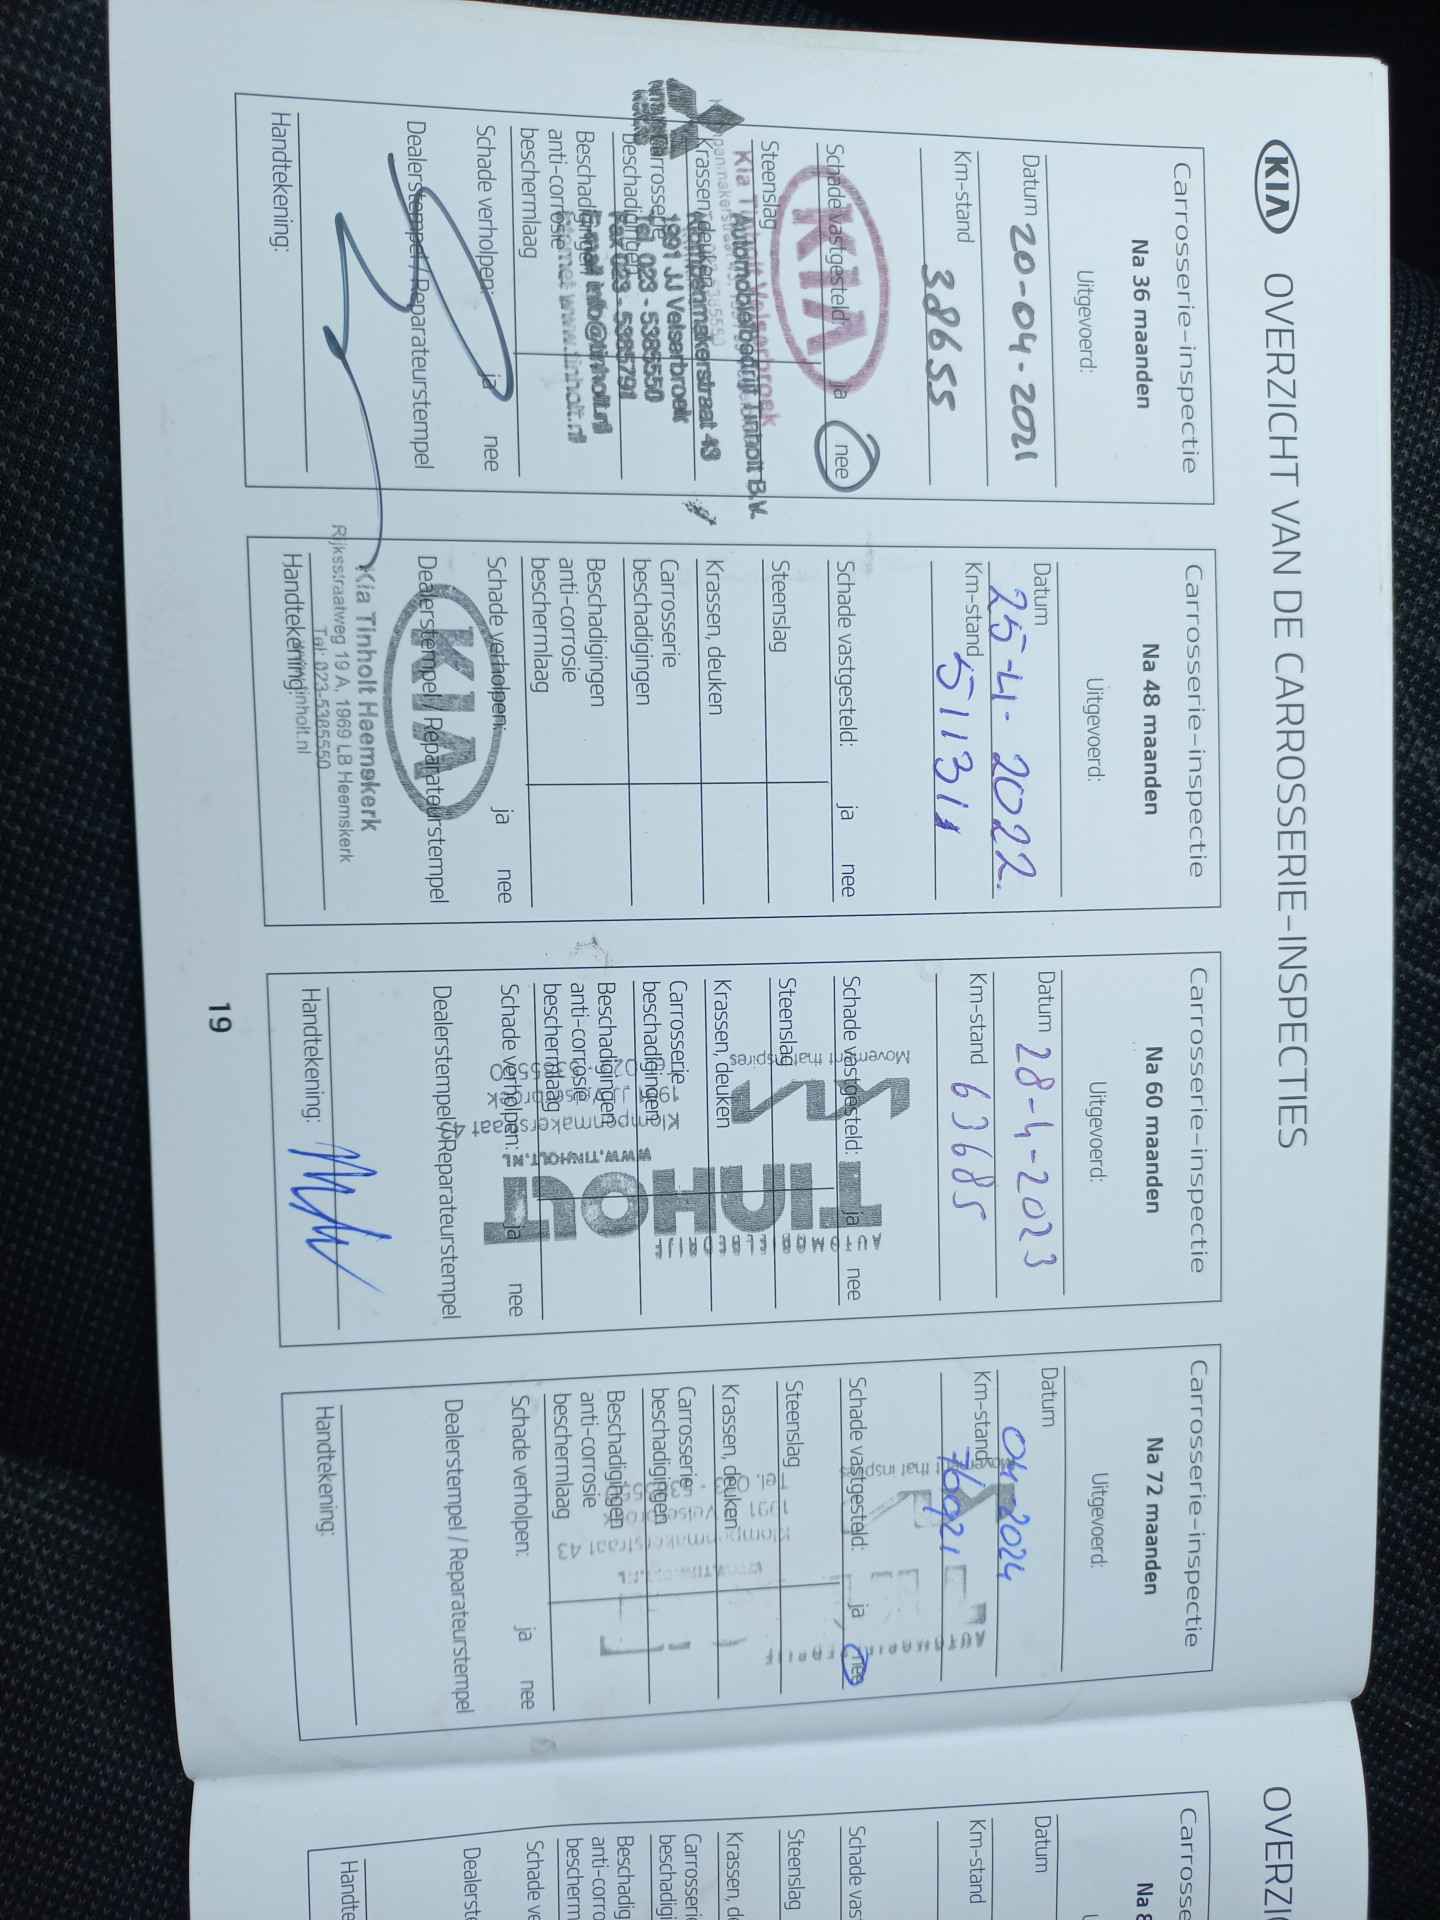 KIA OVERZICHT VAN DE CARROSSERIE-INSPECTIES
Carrosserie-inspectie
Na 36 maanden
Uitgevoerd:
Datum 20-04-2021
Km-stand 38655
Schade vastgesteld: ja nee
Steenslag
Krassen, deuken
Carrosserie
beschadigingen
Beschadigingen
anti-corrosie
beschermlaag
Schade verholpen: ja nee
Dealerstempel / Reparateurstempel
Handtekening:
KIA
Kia Tinholt Velserbroek
Automobielbedrijf Tinholt B.V.
Klompenmakerstraat 43
1991 JJ Velserbroek
Tel. 023 - 5385550
Fax 023 - 5385791
E-mail info@tinholt.nl
Internet www.tinholt.nl
Carrosserie-inspectie
Na 48 maanden
Uitgevoerd:
Datum 25-4-2022.
Km-stand 51131
Schade vastgesteld: ja nee
Steenslag
Krassen, deuken
Carrosserie
beschadigingen
Beschadigingen
anti-corrosie
beschermlaag
Schade verholpen: ja nee
Dealerstempel / Reparateurstempel
KIA
Kia Tinholt Heemskerk
Rijksstraatweg 19 A, 1969 LB Heemskerk
Tel: 023-5385550
Handtekening:
Carrosserie-inspectie
Na 60 maanden
Uitgevoerd:
Datum 28-4-2023
Km-stand 63685
Schade vastgesteld: ja nee
Steenslag
Krassen, deuken
Carrosserie
beschadigingen
Beschadigingen
anti-corrosie
beschermlaag
Schade verholpen: ja nee
Dealerstempel / Reparateurstempel
Handtekening:
AUTOMOBIELBEDRIJF
TINHOLT
WWW.TINHOLT.NL
Klompenmakerstraat 43
1991 JJ Velserbroek
Movement that inspires
Carrosserie-inspectie
Na 72 maanden
Uitgevoerd:
Datum 04-2024
Km-stand
Schade vastgesteld: ja nee
Steenslag
Krassen, deuken
Carrosserie
beschadigingen
Beschadigingen
anti-corrosie
beschermlaag
Schade verholpen: ja nee
Dealerstempel / Reparateurstempel
Handtekening:
Klompenmakerstraat 43
1991 Velserbroek
Movement that inspires
19
OVERZI
Carrosse
Na 8
Datum
Km-stand
Schade vas
Steenslag
Krassen, de
Carrosserie
beschadigi
Beschadig
anti-corro
bescherm
Schade ve
Dealerste
Handte